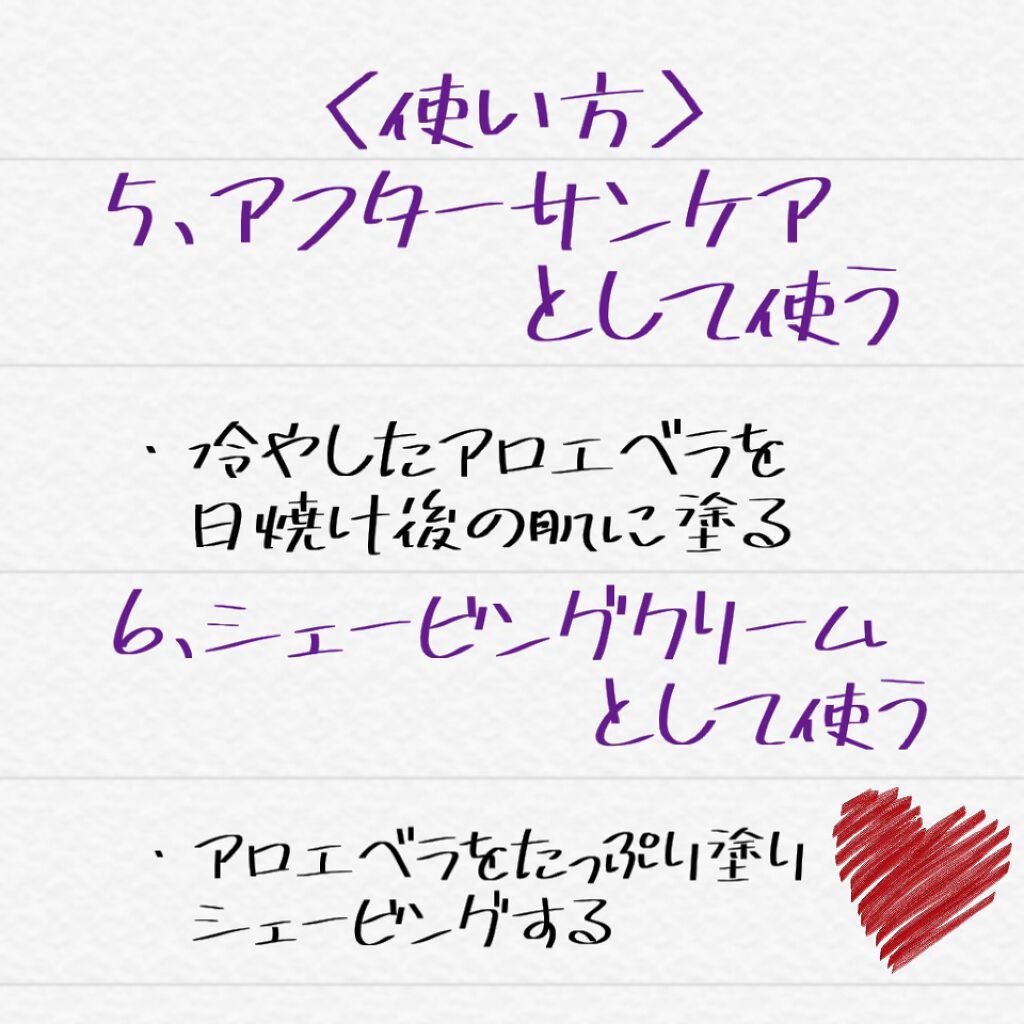 〈使い方〉
5、アフターサンケア
として使う
・冷やしたアロエベラを
日焼け後の肌に塗る
6、シェービングクリーム
として使う
・アロエベラをたっぷり塗り
シェービングする